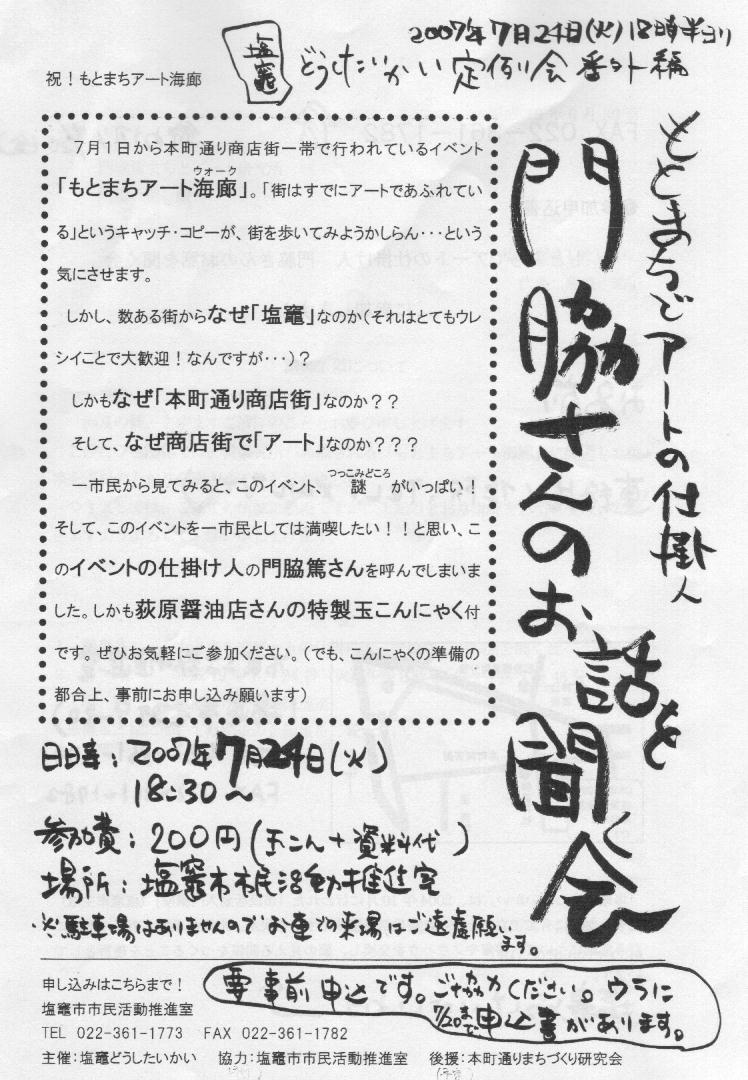 2007年7月24日(火)18時半ヨリ
塩竈
どうしたいかい定例会番外編
祝!もとまちアート海廊
もとまちでアートの仕掛人
門脇さんのお話を聞く会
7月1日から本町通り商店街一帯で行われているイベント
ウォーク
「もとまちアート海廊」。「街はすでにアートであふれてい
る」というキャッチ・コピーが、街を歩いてみようかしらん・・・という
気にさせます。
しかし、数ある街からなぜ「塩竈」なのか(それはとてもウレ
シイことで大歓迎!なんですが・・・)?
しかもなぜ「本町通り商店街」なのか??
そして、なぜ商店街で「アート」なのか???
つっこみどころ
一市民から見てみると、このイベント、謎がいっぱい!
そして、このイベントを一市民としては満喫したい!!と思い、こ
のイベントの仕掛け人の門脇篤さんを呼んでしまいま
した。しかも荻原醤油店さんの特製玉こんにゃく付
です。ぜひお気軽にご参加ください。(でも、こんにゃくの準備の
都合上、事前にお申し込み願います)
日時:2007年7月24日(火)
18:30〜
参加費:200円(玉こん+資料代)
場所:塩竈市市民活動推進室
※駐車場はありませんのでお車での来場はご遠慮願い
ます。
申し込みはこちらまで!
塩竈市市民活動推進室
TEL 022-361-1773 FAX 022-361-1782
要事前申込です。ご協力ください。ウラに
7/20まで申込書があります。
主催:塩竈どうしたいかい 協力:塩竈市市民活動推進室 後援:本町通りまちづくり研究会